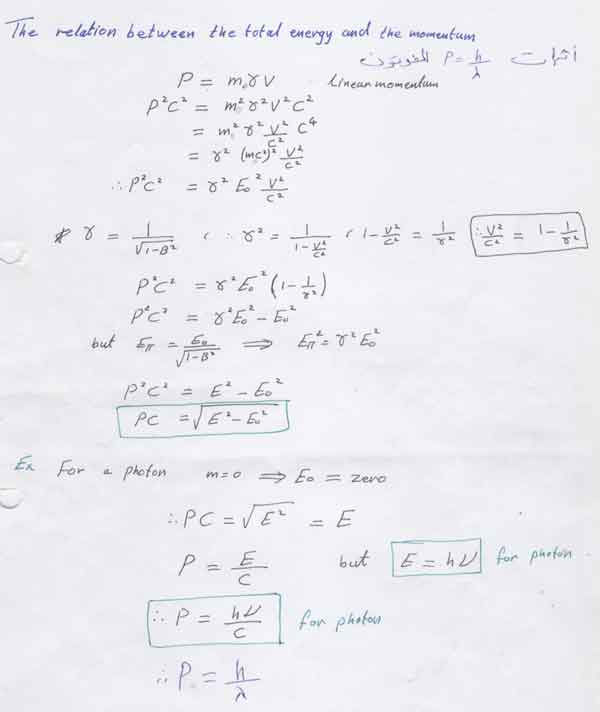 The relation between the total energy and the momentum
P = h/λ
P = m₀γV Linear momentum
P²C² = m₀²γ²V²C²
= m₀²γ² V²/C² C⁴
= γ² (m₀C²)² V²/C²
∴ P²C² = γ² E₀² V²/C²
γ = 1/√1-B² , ∴ γ² = 1/(1 - V²/C²) , 1 - V²/C² = 1/γ² ∴ V²/C² = 1 - 1/γ²
P²C² = γ²E₀² (1 - 1/γ²)
P²C² = γ²E₀² - E₀²
but = E₀/√1-B² ⟹ = γ²E₀²
P²C² = E² - E₀²
PC = √E² - E₀²
Ex For a photon m=0 ⟹ E₀ = zero
∴ PC = √E² = E
P = E/C but E = hν for photon
∴ P = hν/C for photon
∴ P = h/λ